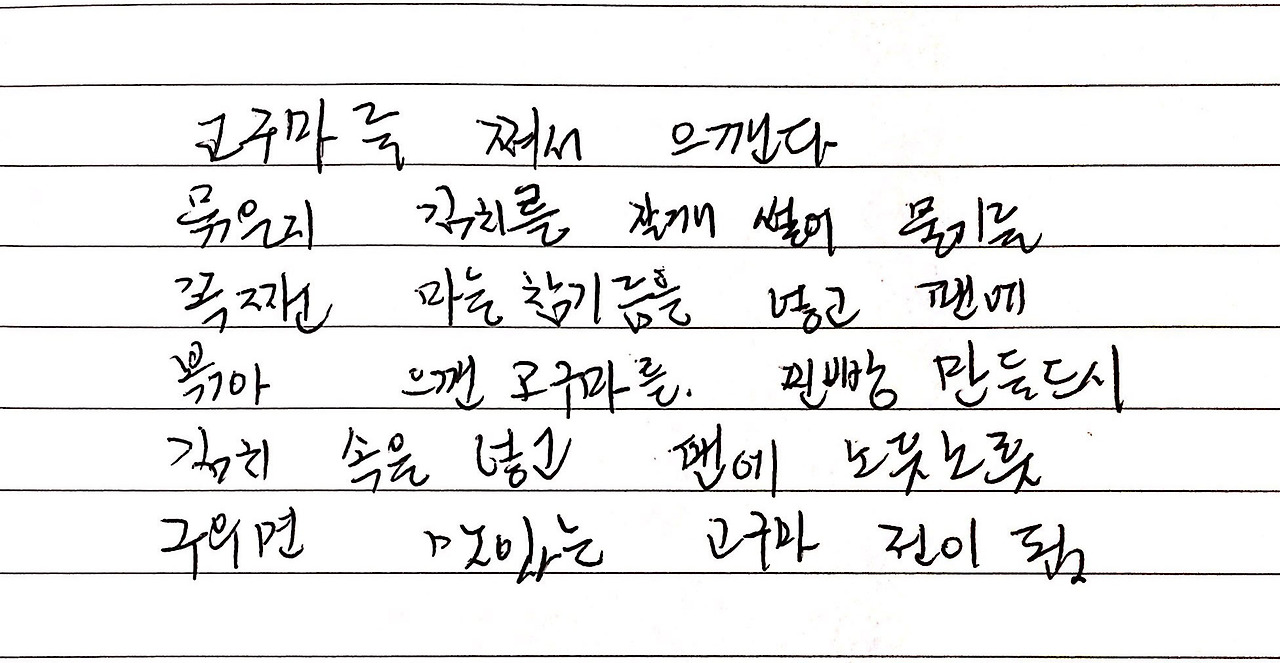 고구마를 쪄서 으깬다
묶은지 김치를 잘게 썰어 물기를
꼭 짠 마늘 참기름을 넣고 팬에
볶아 으깬 고구마를. 찐빵 만들드시
김치 속을 넣고 팬에 노릇노릇
구우면 맛있는 고구마 전이 됨